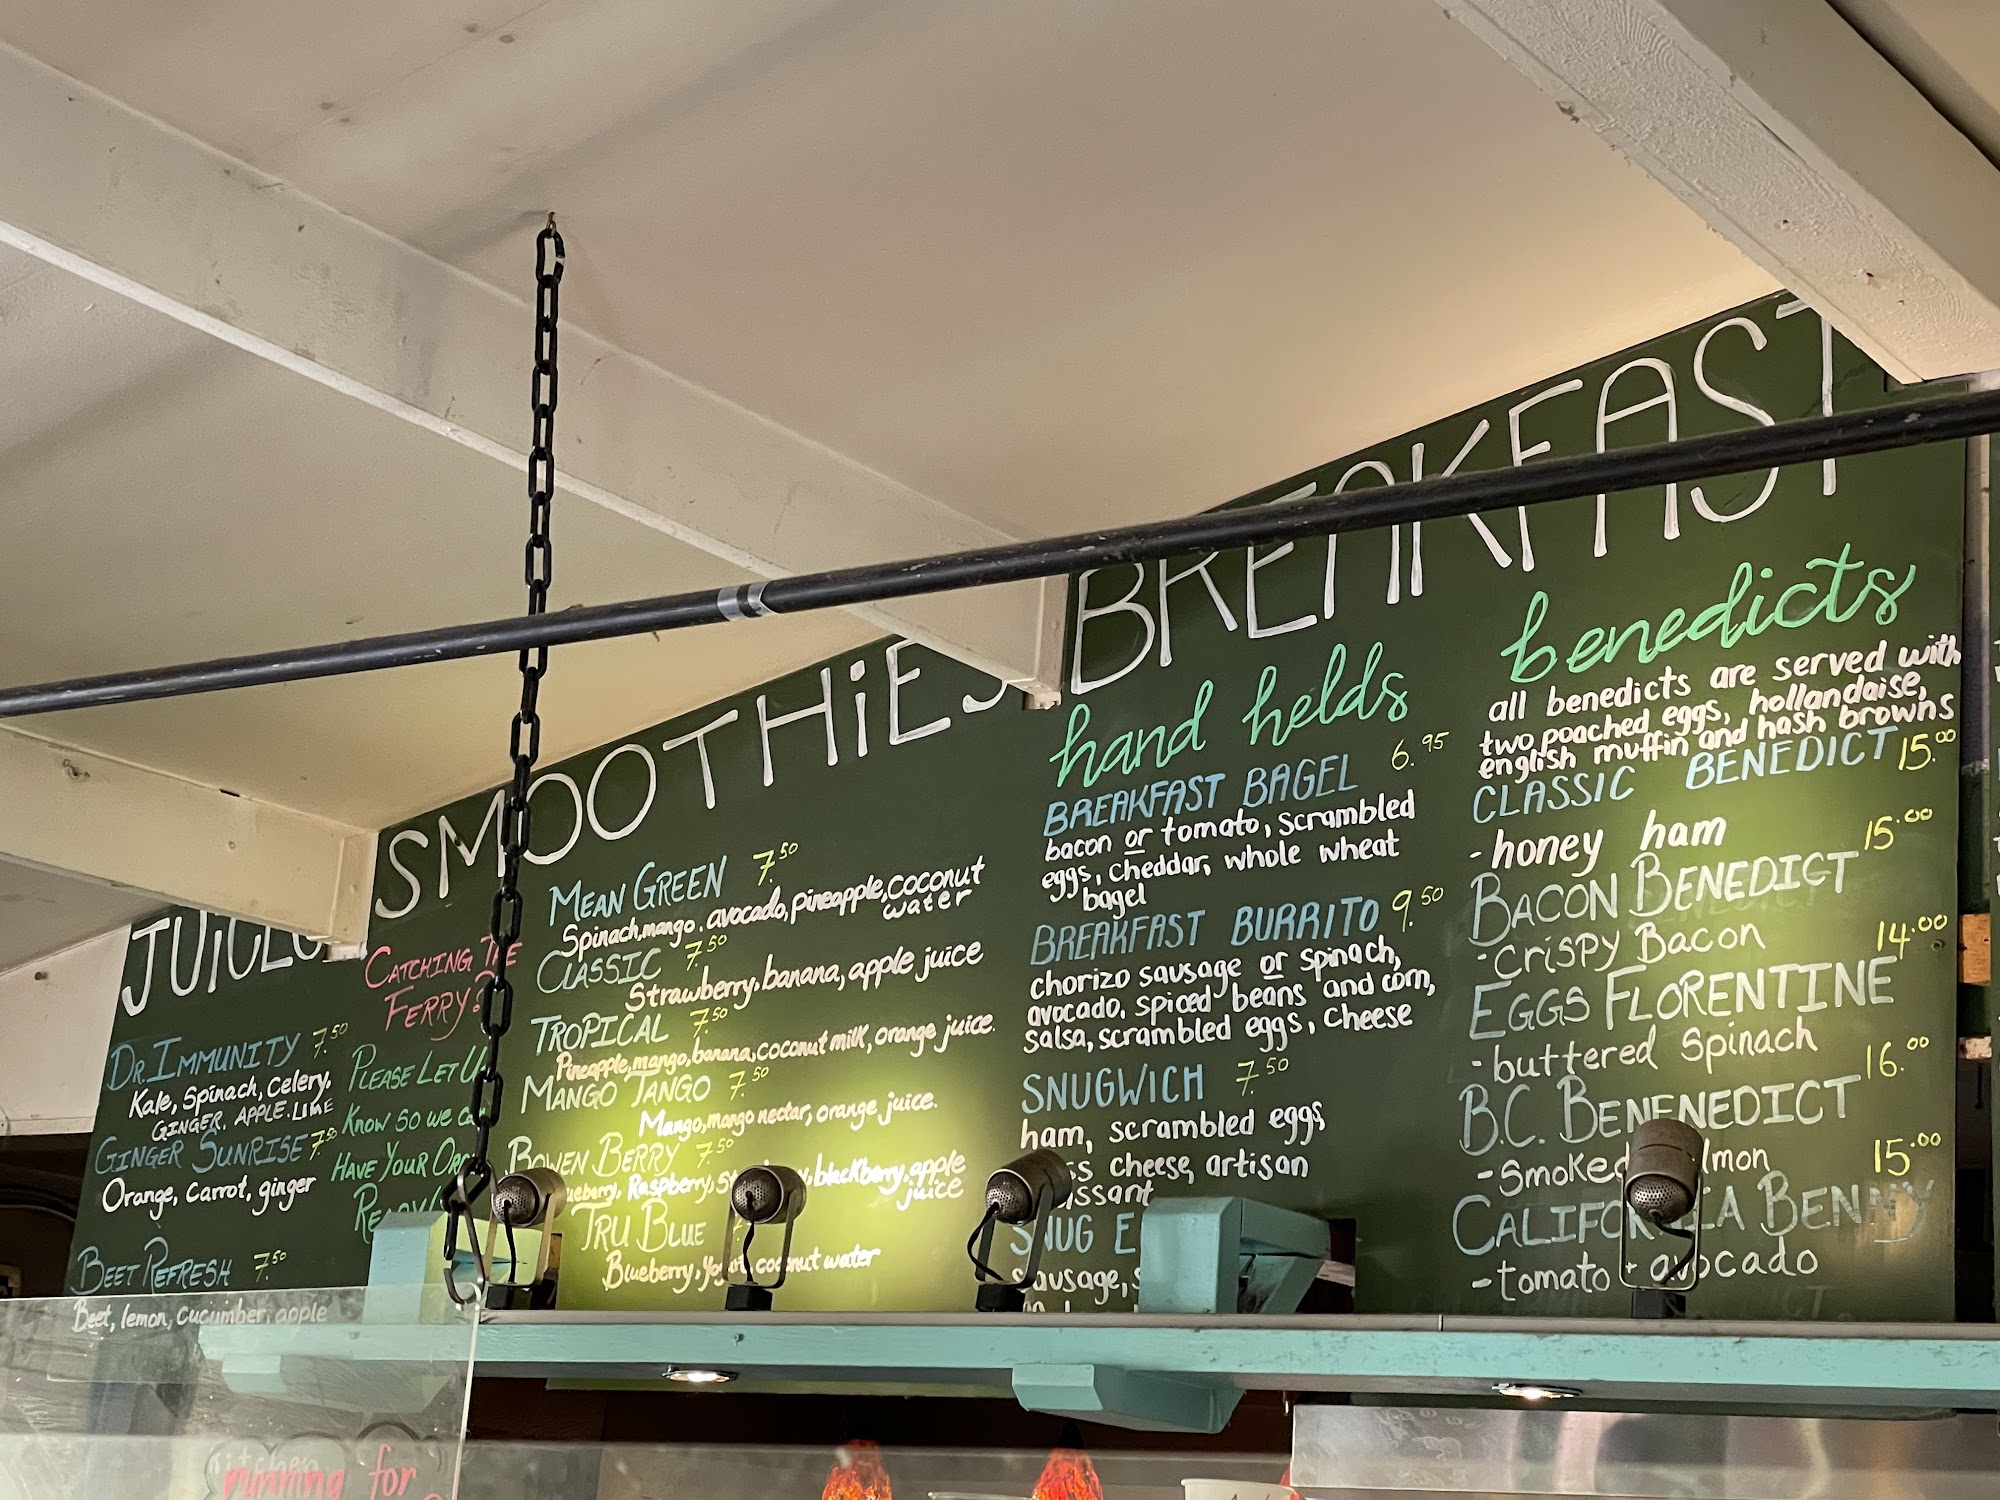 JUICE
DR. IMMUNITY 7.50
Kale, Spinach, Celery,
GINGER, APPLE. LIME
GINGER SUNRISE 7.50
Orange, Carrot, ginger
BEET REFRESH 7.50
Beet, lemon, cucumber, apple
CATCHING THE
FERRY?
PLEASE LET US
KNOW SO WE CAN
HAVE YOUR
SMOOTHIES
MEAN GREEN 7.50
Spinach, mango, avocado, pineapple, coconut
water
CLASSIC 7.50
Strawberry, banana, apple juice
TROPICAL 7.50
Pineapple, mango, banana, coconut milk, orange juice.
MANGO TANGO 7.50
Mango, mango nectar, orange juice.
BOWEN BERRY 7.50
Raspberry, blackberry, apple
juice
TRU BLUE
Blueberry, yogurt, coconut water
BREAKFAST
hand helds
BREAKFAST BAGEL 6.95
bacon or tomato, scrambled
eggs, cheddar, whole wheat
bagel
BREAKFAST BURRITO 9.50
chorizo sausage or spinach,
avocado, spiced beans and corn,
salsa, scrambled eggs, cheese
SNUGWICH 7.50
ham, scrambled eggs
cheese, artisan
SNUG E
sausage,
benedicts
all benedicts are served with
two poached eggs, hollandaise,
english muffin and hash browns
CLASSIC BENEDICT 15.00
- honey ham
BACON BENEDICT 15.00
- Crispy Bacon
EGGS FLORENTINE 14.00
- buttered Spinach
B.C. BENENEDICT 16.00
- Smoked
CALIFORNIA BENNY 15.00
- tomato + avocado
kitchen
running for